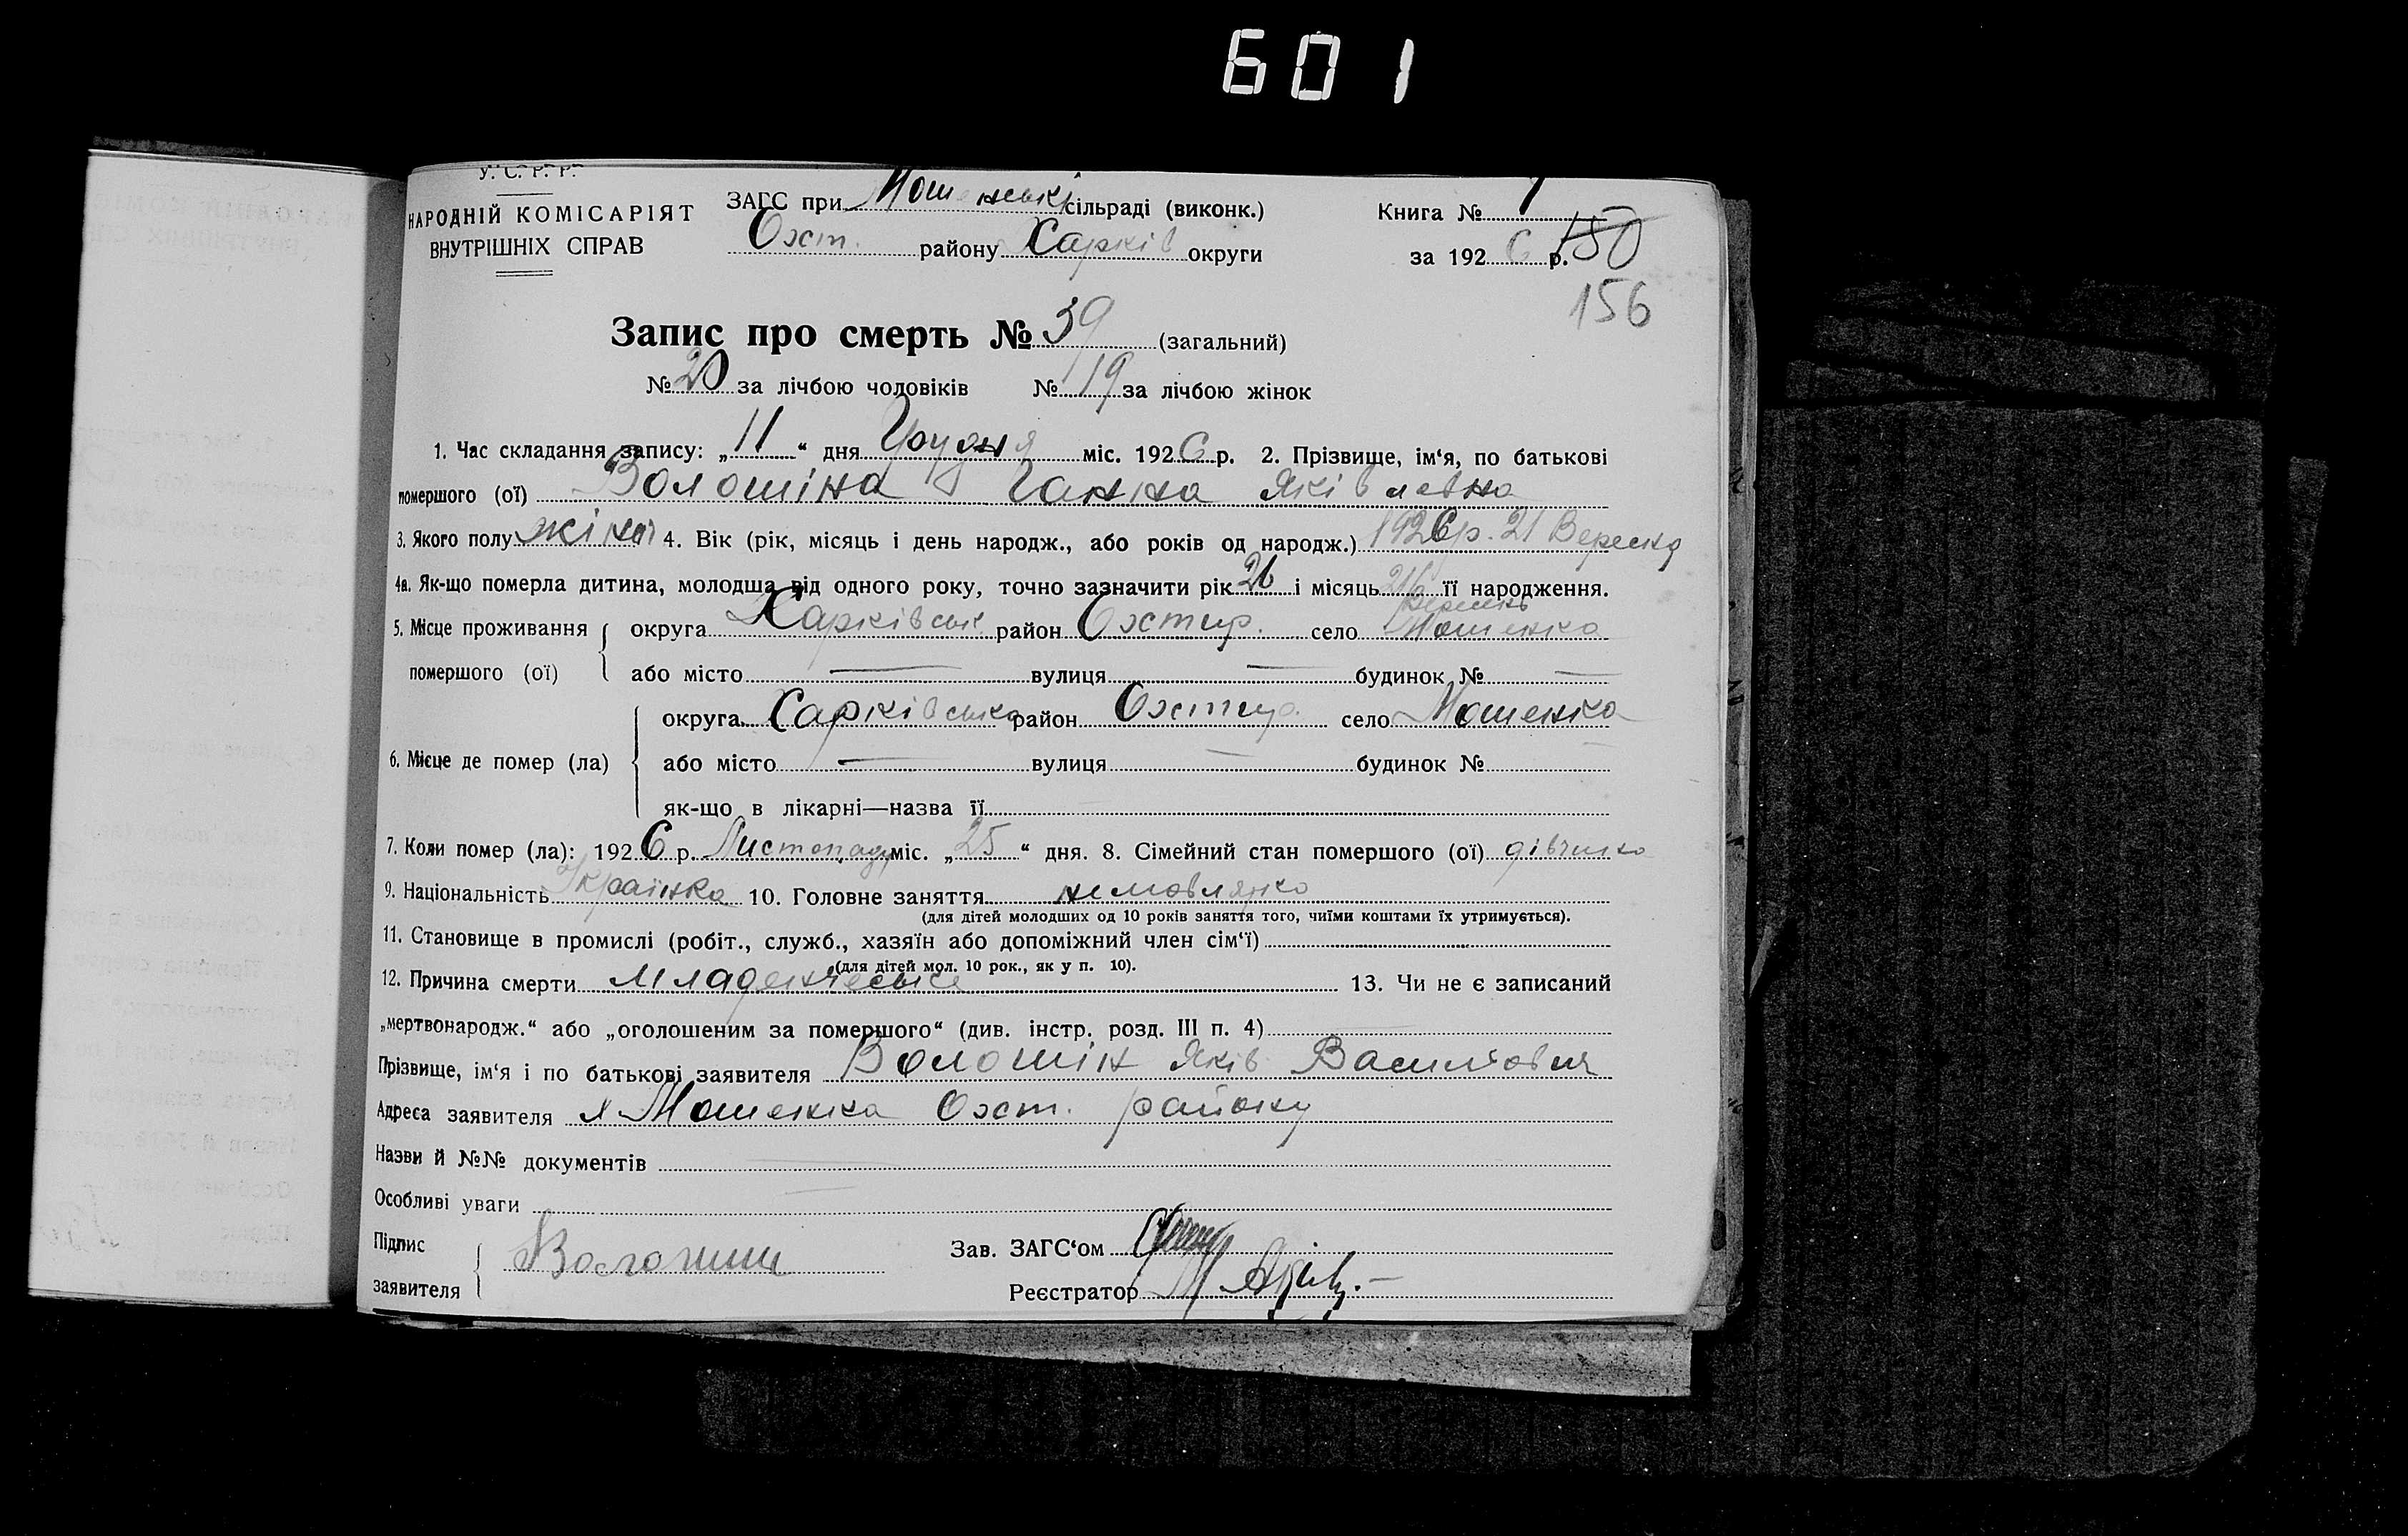 601
У. С. Р. Р.
НАРОДНІЙ КОМІСАРІЯТ
ВНУТРІШНІХ СПРАВ
ЗАГС при Мошенські сільраді (виконк.)
Охт. району Харків округи
Книга № 1
за 1926 р. 150
156
Запис про смерть № 39 (загальний)
№ 20 за лічбою чоловіків № 19 за лічбою жінок
1. Час складання запису: „11“ дня Грудня міс. 1926 р. 2. Прізвище, ім‘я, по батькові
помершого (ої) Волошіна Ганна Яківлевна
3. Якого полу жіноч 4. Вік (рік, місяць і день народж., або років од народж.) 1926 р. 21 Вересня
4а. Як-що померла дитина, молодша від одного року, точно зазначити рік 26 і місяць її народження.
5. Місце проживання помершого (ої) округа Харківськ. район Охтир. село Мошенка
або місто — вулиця — будинок № —
6. Місце де помер (ла) округа Харківська район Охтир. село Мошенка
або місто — вулиця — будинок № —
як-що в лікарні—назва її
7. Коли помер (ла): 1926 р. Листопаду міс. „25“ дня. 8. Сімейний стан помершого (ої) дівчинка
9. Національність Українка 10. Головне заняття немовлятко
(для дітей молодших од 10 років заняття того, чиїми коштами їх утримується).
11. Становище в промислі (робіт., служб., хазяїн або допоміжний член сім‘ї)
(для дітей мол. 10 рок., як у п. 10).
12. Причина смерти младенческе 13. Чи не є записаний
„мертвонародж.“ або „оголошеним за помершого“ (див. інстр. розд. III п. 4)
Прізвище, ім‘я і по батькові заявителя Волошін Яків Васильович
Адреса заявителя Мошенка Охт. району
Назви й №№ документів
Особливі уваги
Підпис заявителя Волошин
Зав. ЗАГС‘ом
Реєстратор